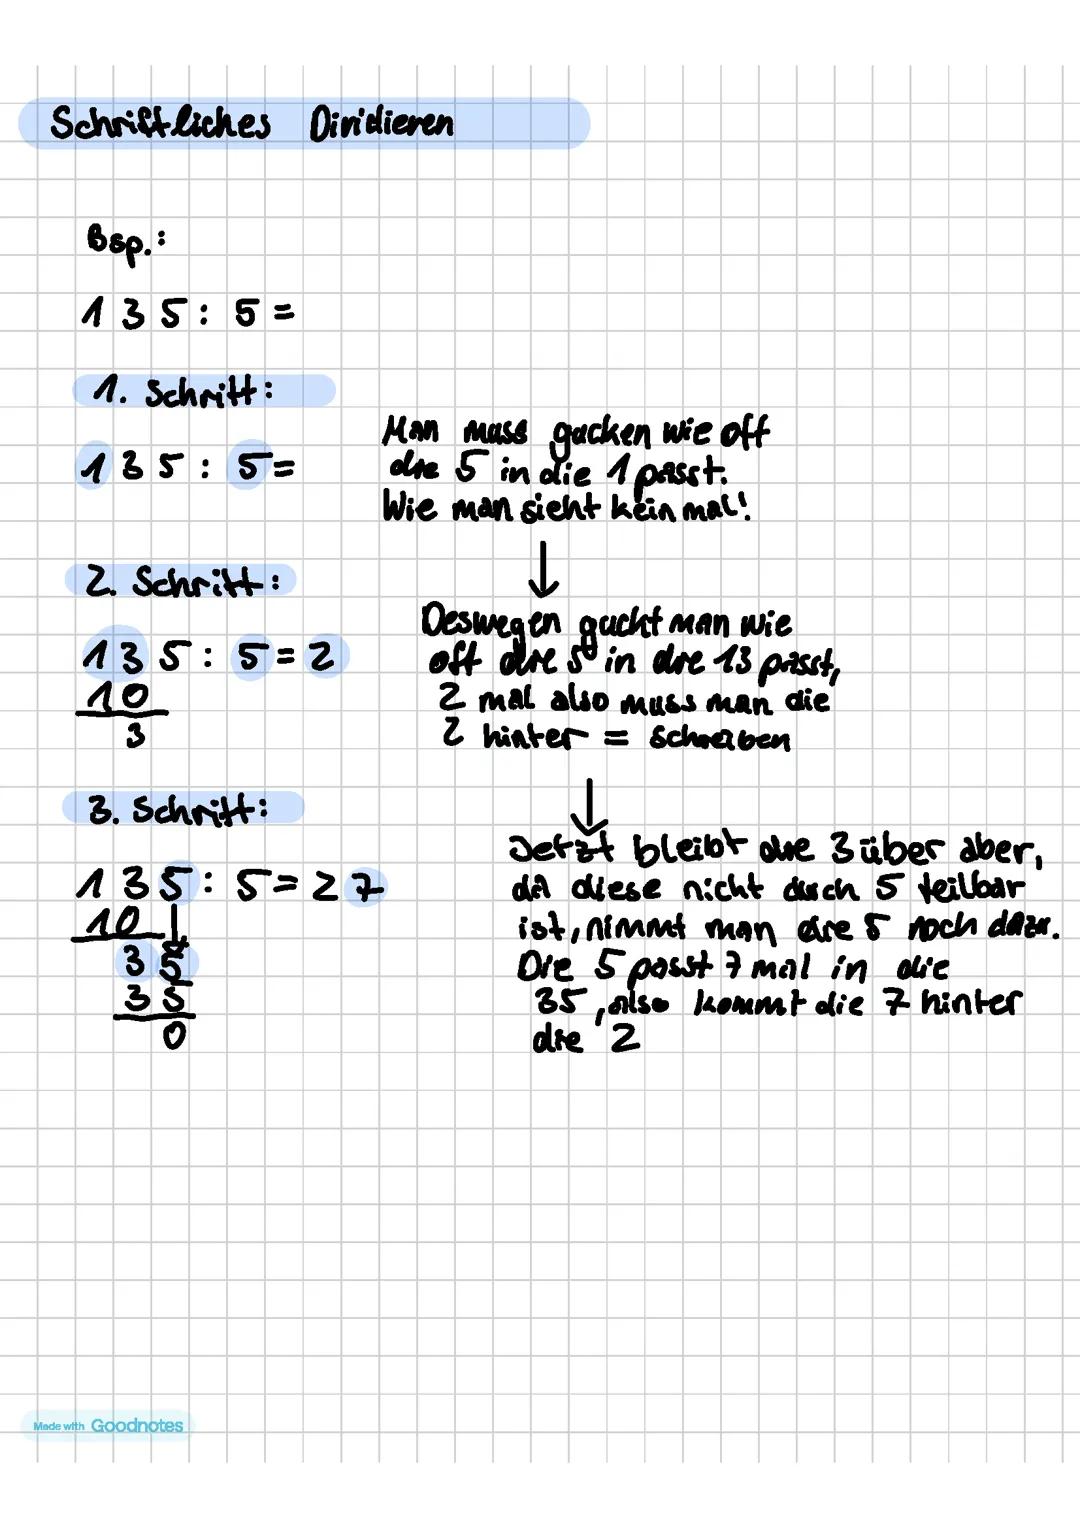 Schriftliches Dividieren
Bsp.:
135: 5=
1. Schritt:
135: 5=
Man muss gucken wie oft
die 5 in die 1 passt.
Wie man sieht kein mal!
↓
2. Schritt:
135: 5=2
10
3
Deswegen guckt man wie
oft die 5 in die 13 passt,
2 mal also muss man die
2 hinter = schreiben
↓
3. Schritt:
135: 5=27
10↓
35
35
0
Jetzt bleibt die 3 über aber,
da diese nicht durch 5 teilbar
ist, nimmt man die 5 noch dazu.
Die 5 passt 7 mal in die
35, also kommt die 7 hinter
die 2
Made with Goodnotes